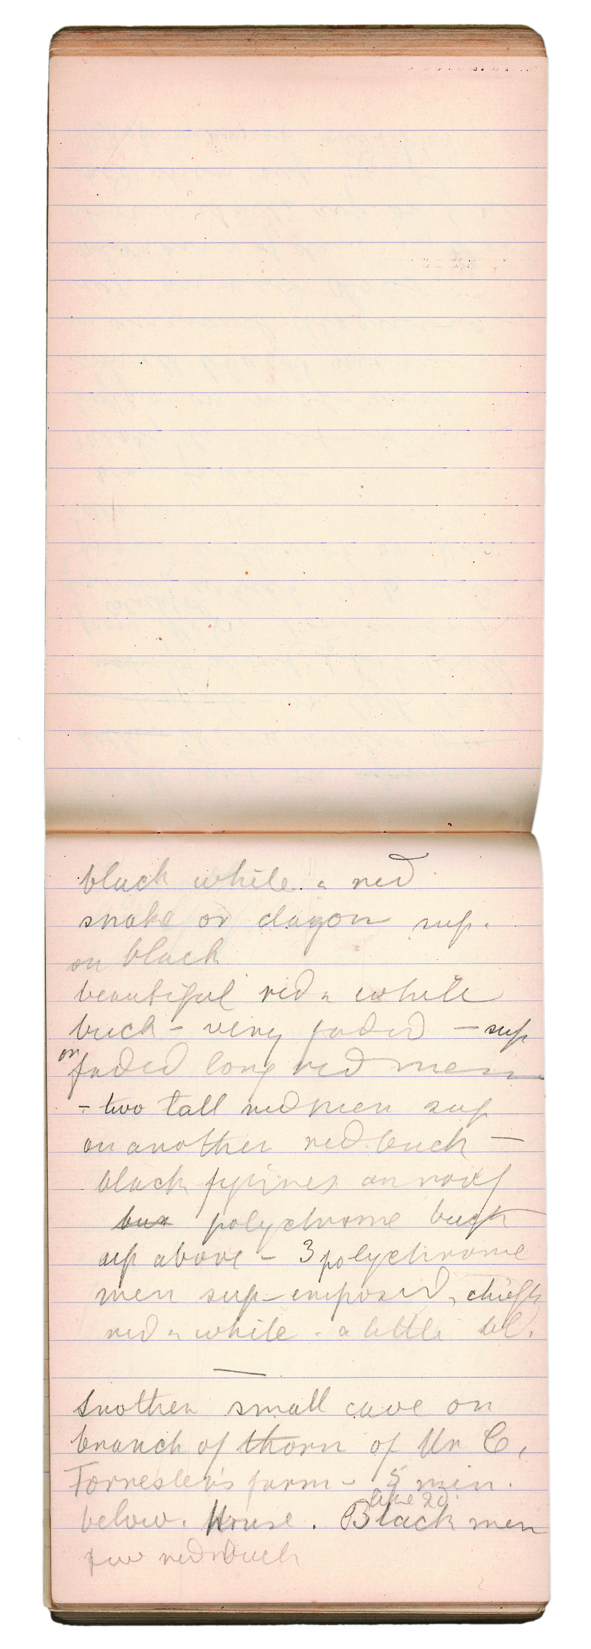 black white & red
snake or dragon sup.
on black
beautiful red & white
buck – very faded – sup
on faded long red men
– two tall red men sup
on another red buck –
black figures on roof
polychrome buck
sup above – 3 polychrome
men sup-imposed, chiefly
red & white – a little bl.
Another small cave on
branch of thorn of Mr C.
Forrester's farm – 5 min.
below House. Black men
few red buck